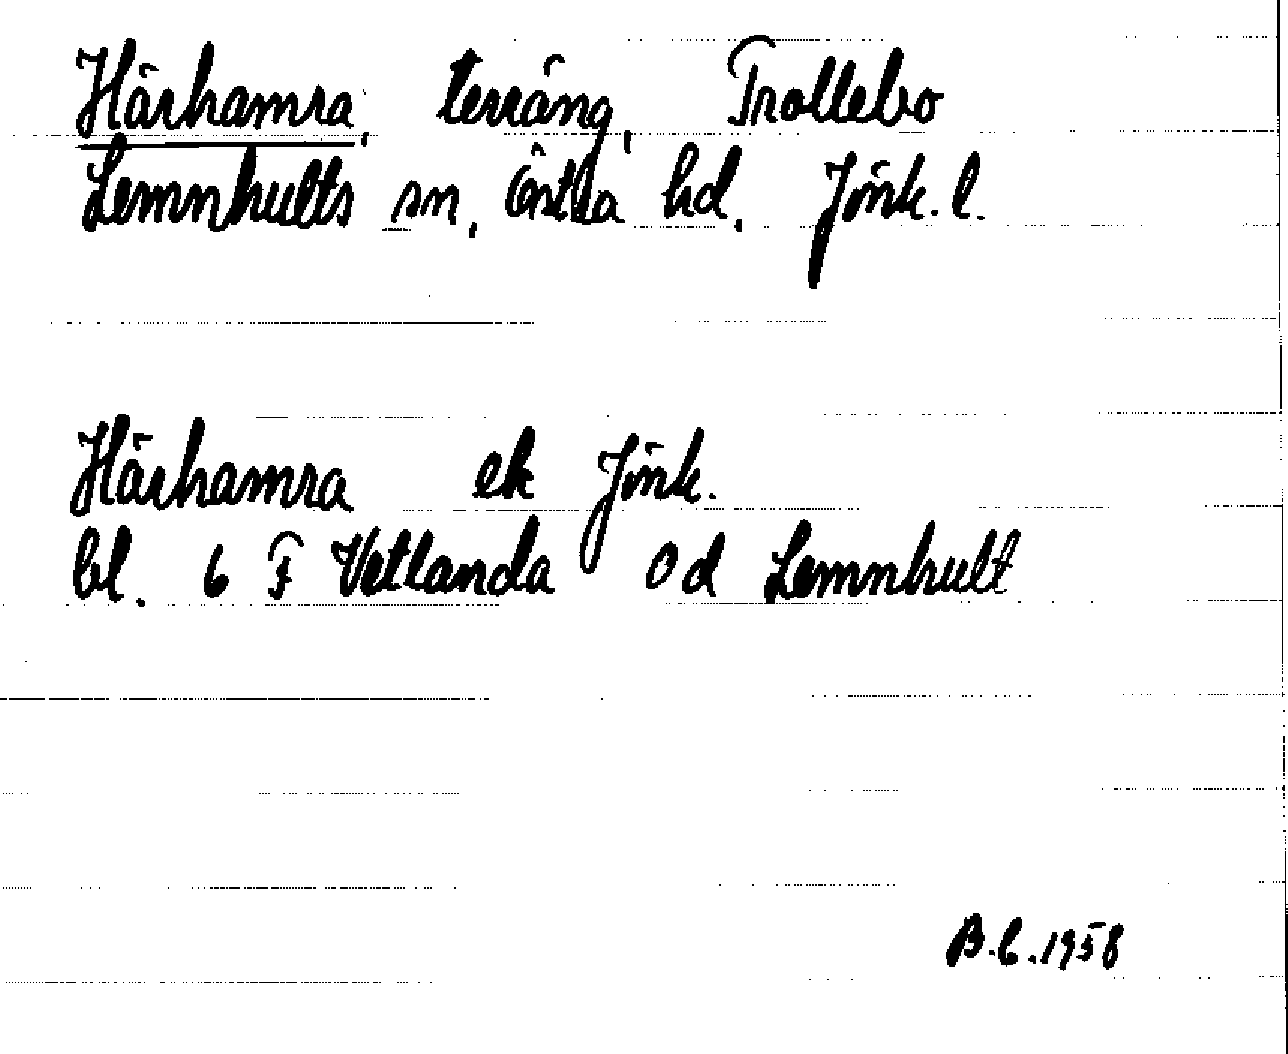 Härhamra, terräng, Trollebo
Lemnhults sn, Östra hd. Jönk. l.
Härhamra ek Jönk.
bl. 6 F Vetlanda Od Lemnhult
B.C. 1958